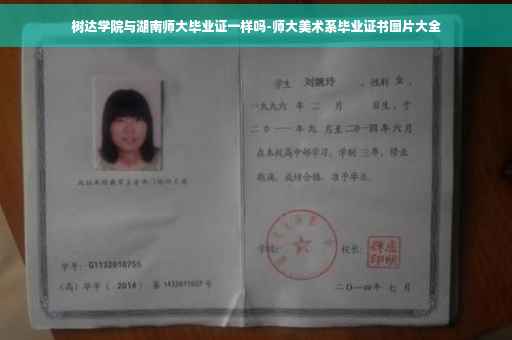 树达学院与湖南师大毕业证一样吗-师大美术系毕业证书图片大全
学生 刘婉玲 ,性别 女 ,
一九九六 年 二 月 日生,于
二〇一一年九 月至二〇一四年六月
在本校高中部学习,学制 三年,修业
期满,成绩合格,准予毕业。
学校: 校长:
学号: G1132010755
(高)毕字( 2014 )第 1432011027 号
二〇一四年 七 月